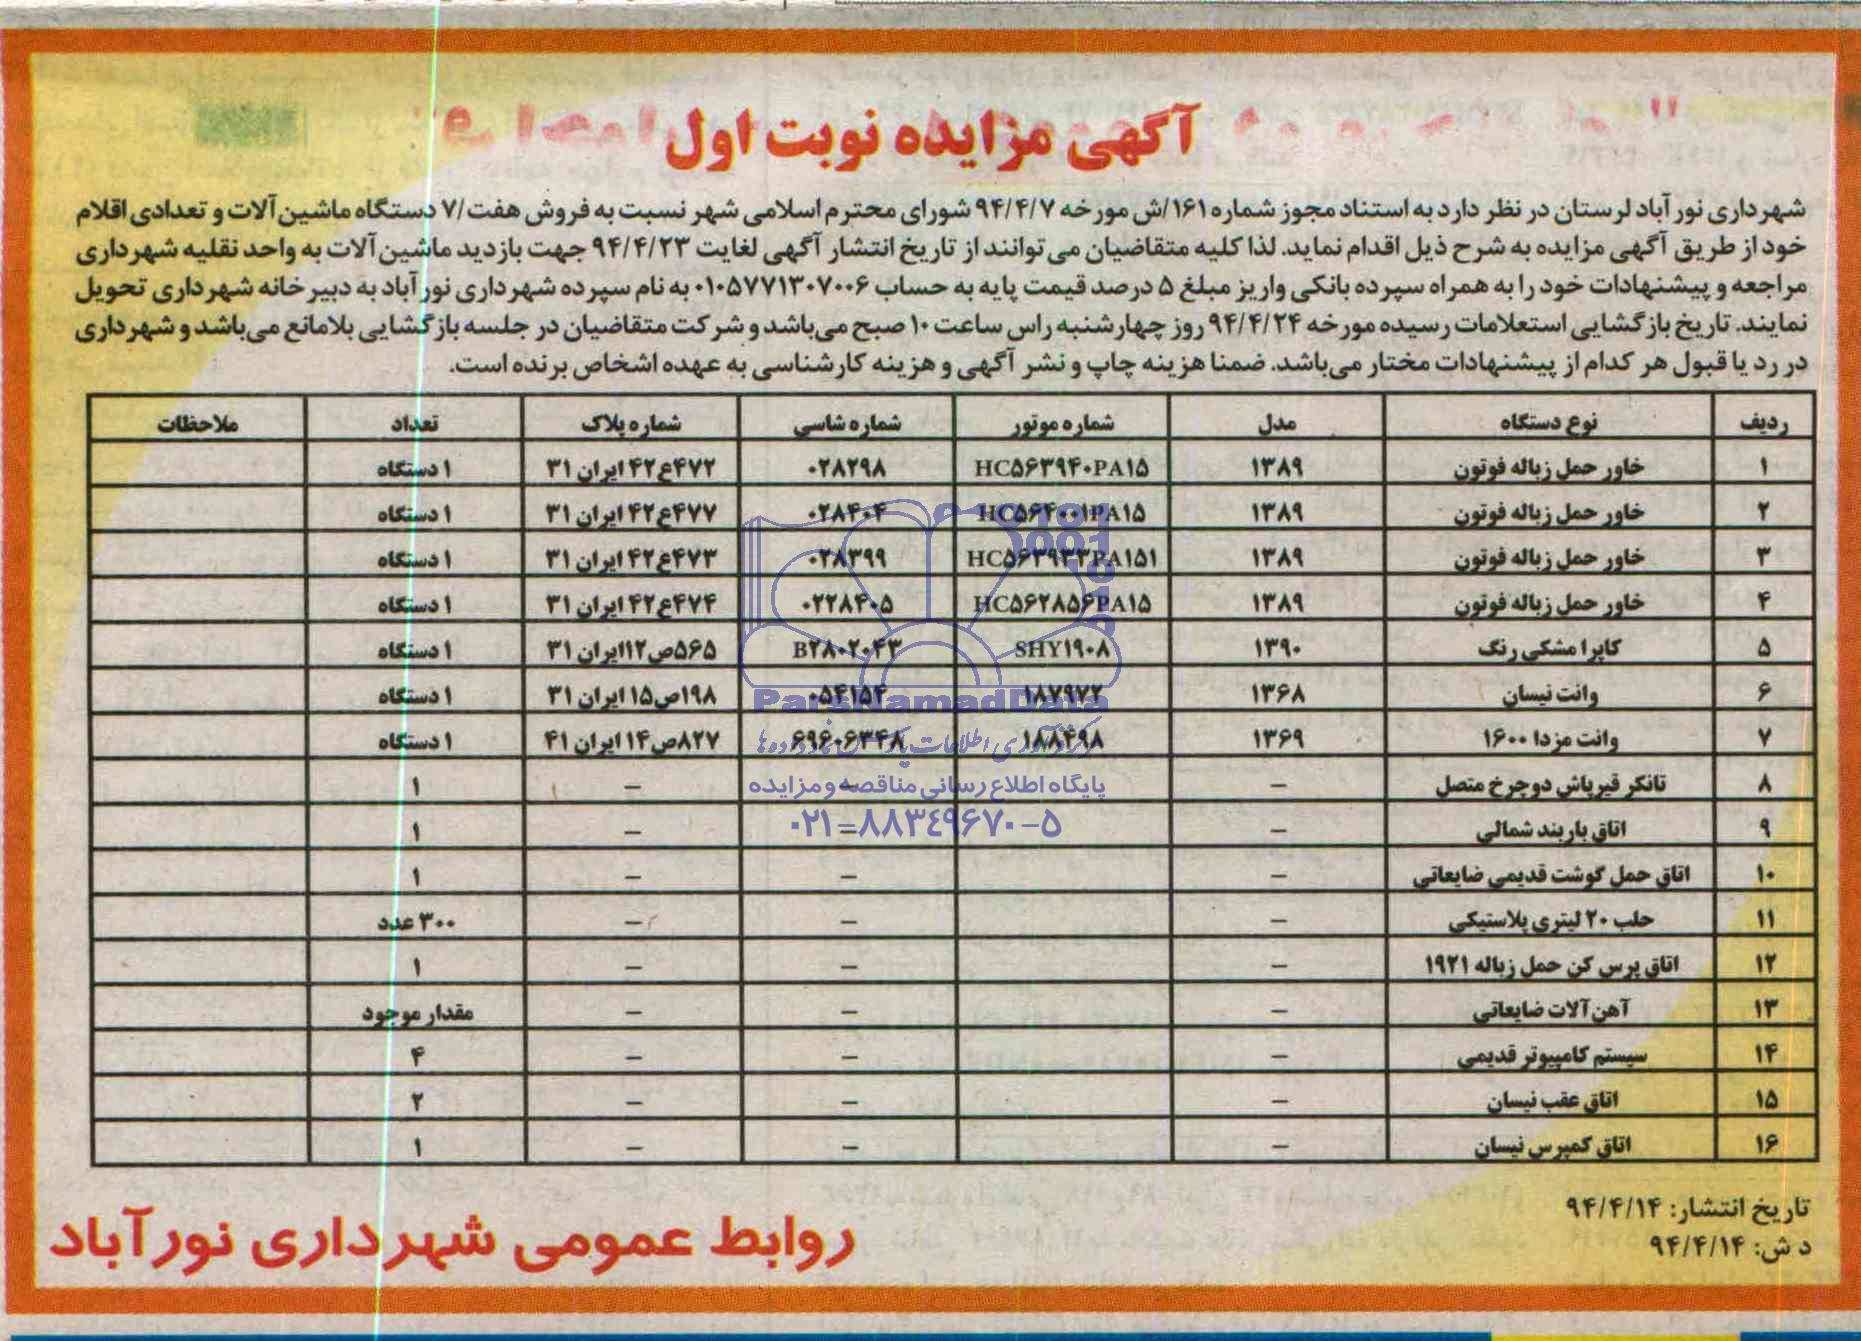 آگهی مزایده نوبت اول
شهرداری نورآباد لرستان در نظر دارد به استناد مجوز شماره ۱۶۱/ش مورخه ۹۴/۴/۷ شورای محترم اسلامی شهر نسبت به فروش هفت/۷ دستگاه ماشین‌آلات و تعدادی اقلام
خود از طریق آگهی مزایده به شرح ذیل اقدام نماید. لذا کلیه متقاضیان می‌توانند از تاریخ انتشار آگهی لغایت ۹۴/۴/۲۳ جهت بازدید ماشین‌آلات به واحد نقلیه شهرداری
مراجعه و پیشنهادات خود را به همراه سپرده بانکی واریز مبلغ ۵ درصد قیمت پایه به حساب ۰۱۰۵۷۷۱۳۰۷۰۰۶ به نام سپرده شهرداری نورآباد به دبیرخانه شهرداری تحویل
نمایند. تاریخ بازگشایی استعلامات رسیده مورخه ۹۴/۴/۲۴ روز چهارشنبه راس ساعت ۱۰ صبح می‌باشد و شرکت متقاضیان در جلسه بازگشایی بلامانع می‌باشد و شهرداری
در رد یا قبول هر کدام از پیشنهادات مختار می‌باشد. ضمنا هزینه چاپ و نشر آگهی و هزینه کارشناسی به عهده اشخاص برنده است.
ردیف نوع دستگاه مدل شماره موتور شماره شاسی شماره پلاک تعداد ملاحظات
۱ خاور حمل زباله فوتون ۱۳۸۹ HC۵۶۳۹۴۰PA۱۵ ۰۲۸۲۹۸ ۴۷۲ع۴۲ ایران ۳۱ ۱ دستگاه
۲ خاور حمل زباله فوتون ۱۳۸۹ HC۵۶۴۰۰۱PA۱۵ ۰۲۸۴۰۴ ۴۷۷ع۴۲ ایران ۳۱ ۱ دستگاه
۳ خاور حمل زباله فوتون ۱۳۸۹ HC۵۶۳۹۳۳PA۱۵۱ ۰۲۸۳۹۹ ۴۷۳ع۴۲ ایران ۳۱ ۱ دستگاه
۴ خاور حمل زباله فوتون ۱۳۸۹ HC۵۶۲۸۵۶PA۱۵ ۰۲۲۸۴۰۵ ۴۷۴ع۴۲ ایران ۳۱ ۱ دستگاه
۵ کاپرا مشکی رنگ ۱۳۹۰ SHY۱۹۰۸ B۲۸۰۲۰۴۳ ۵۶۵ص۱۲ایران ۳۱ ۱ دستگاه
۶ وانت نیسان ۱۳۶۸ ۱۸۷۹۷۲ ۰۵۴۱۵۴ ۱۹۸ص۱۵ ایران ۳۱ ۱ دستگاه
۷ وانت مزدا ۱۶۰۰ ۱۳۶۹ ۱۸۸۴۹۸ ۶۹۶۰۶۳۴۸ ۸۲۷ص۱۴ ایران ۴۱ ۱ دستگاه
۸ تانکر قیرپاش دوچرخ متصل – – – ۱
۹ اتاق باربند شمالی – – – ۱
۱۰ اتاق حمل گوشت قدیمی ضایعاتی – – – ۱
۱۱ حلب ۲۰ لیتری پلاستیکی – – – ۳۰۰ عدد
۱۲ اتاق پرس کن حمل زباله ۱۹۲۱ – – – ۱
۱۳ آهن‌آلات ضایعاتی – – – مقدار موجود
۱۴ سیستم کامپیوتر قدیمی – – – ۴
۱۵ اتاق عقب نیسان – – – ۲
۱۶ اتاق کمپرس نیسان – – – ۱
ParsNamadData
پایگاه اطلاع رسانی مناقصه و مزایده
۰۲۱-۸۸۳۴۹۶۷۰-۵
تاریخ انتشار: ۹۴/۴/۱۴
د ش: ۹۴/۴/۱۴
روابط عمومی شهرداری نورآباد